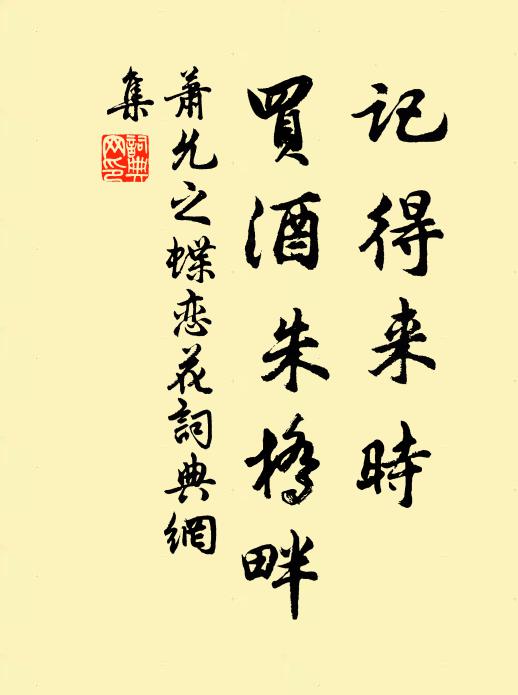 記得来時
買酒朱橋畔
蕭允之蝶恋花詞典網
集
詞典
网印